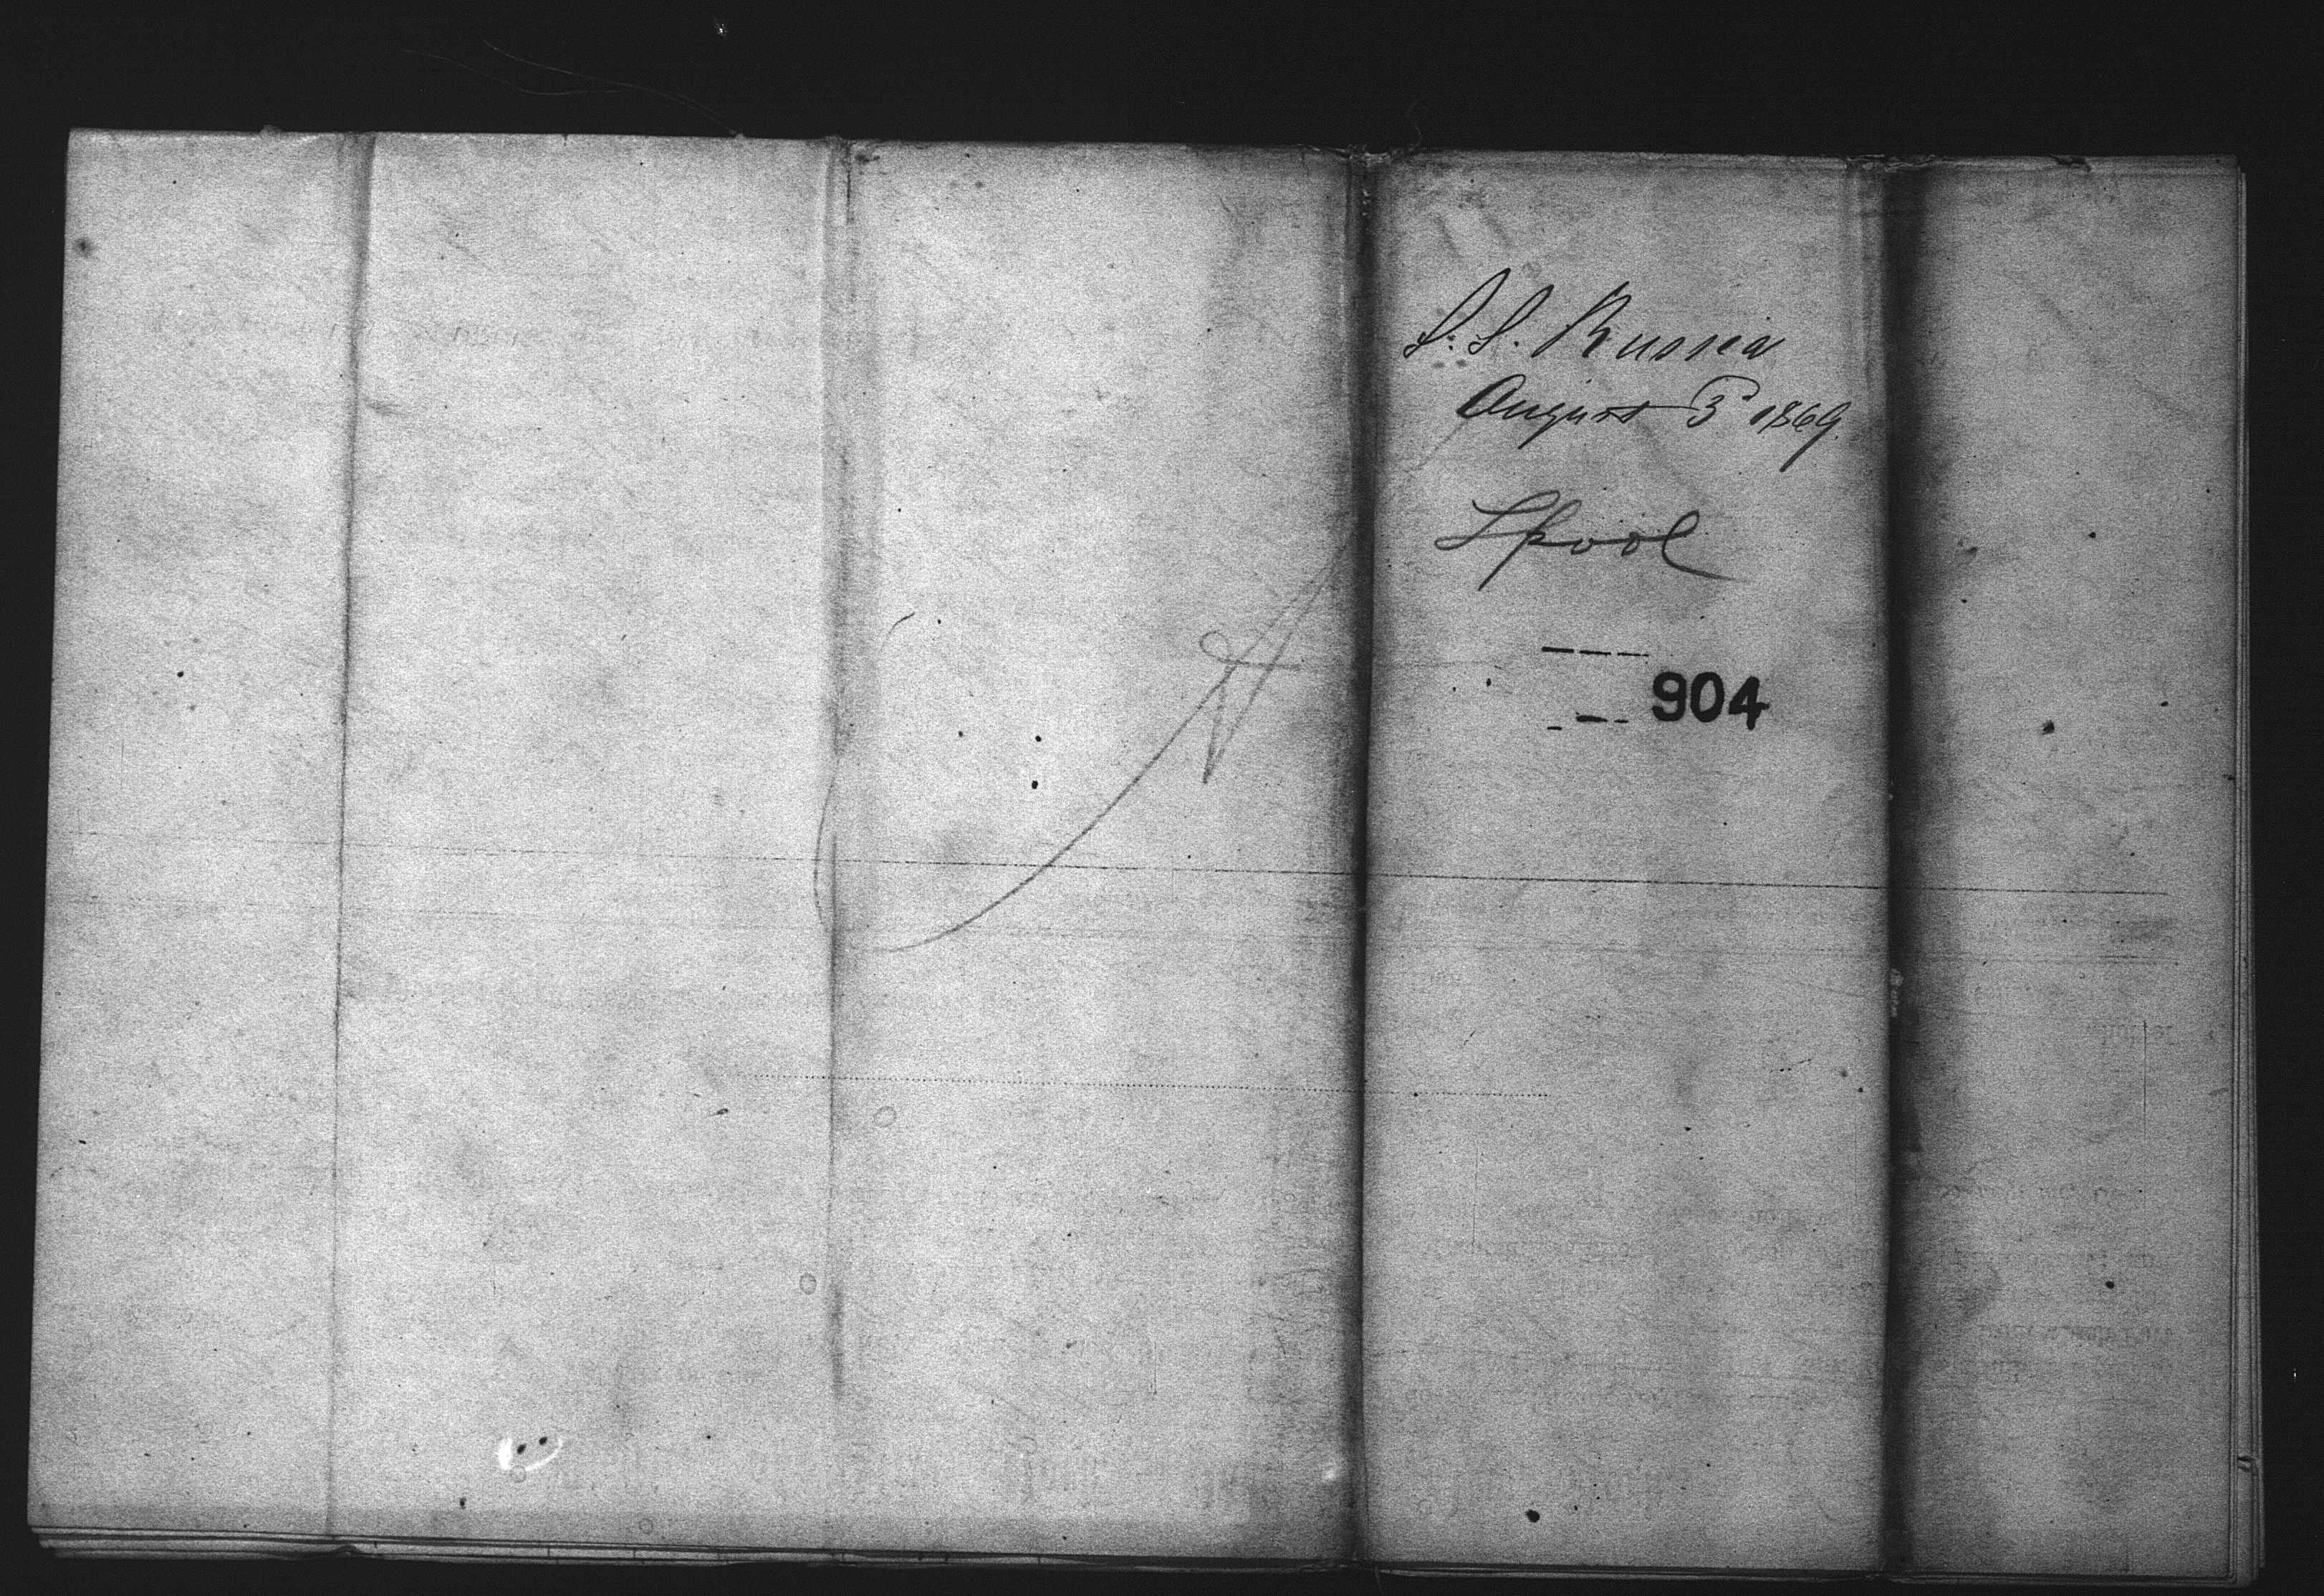 S.S. Russia
August 3d 1869.
Lpool
904